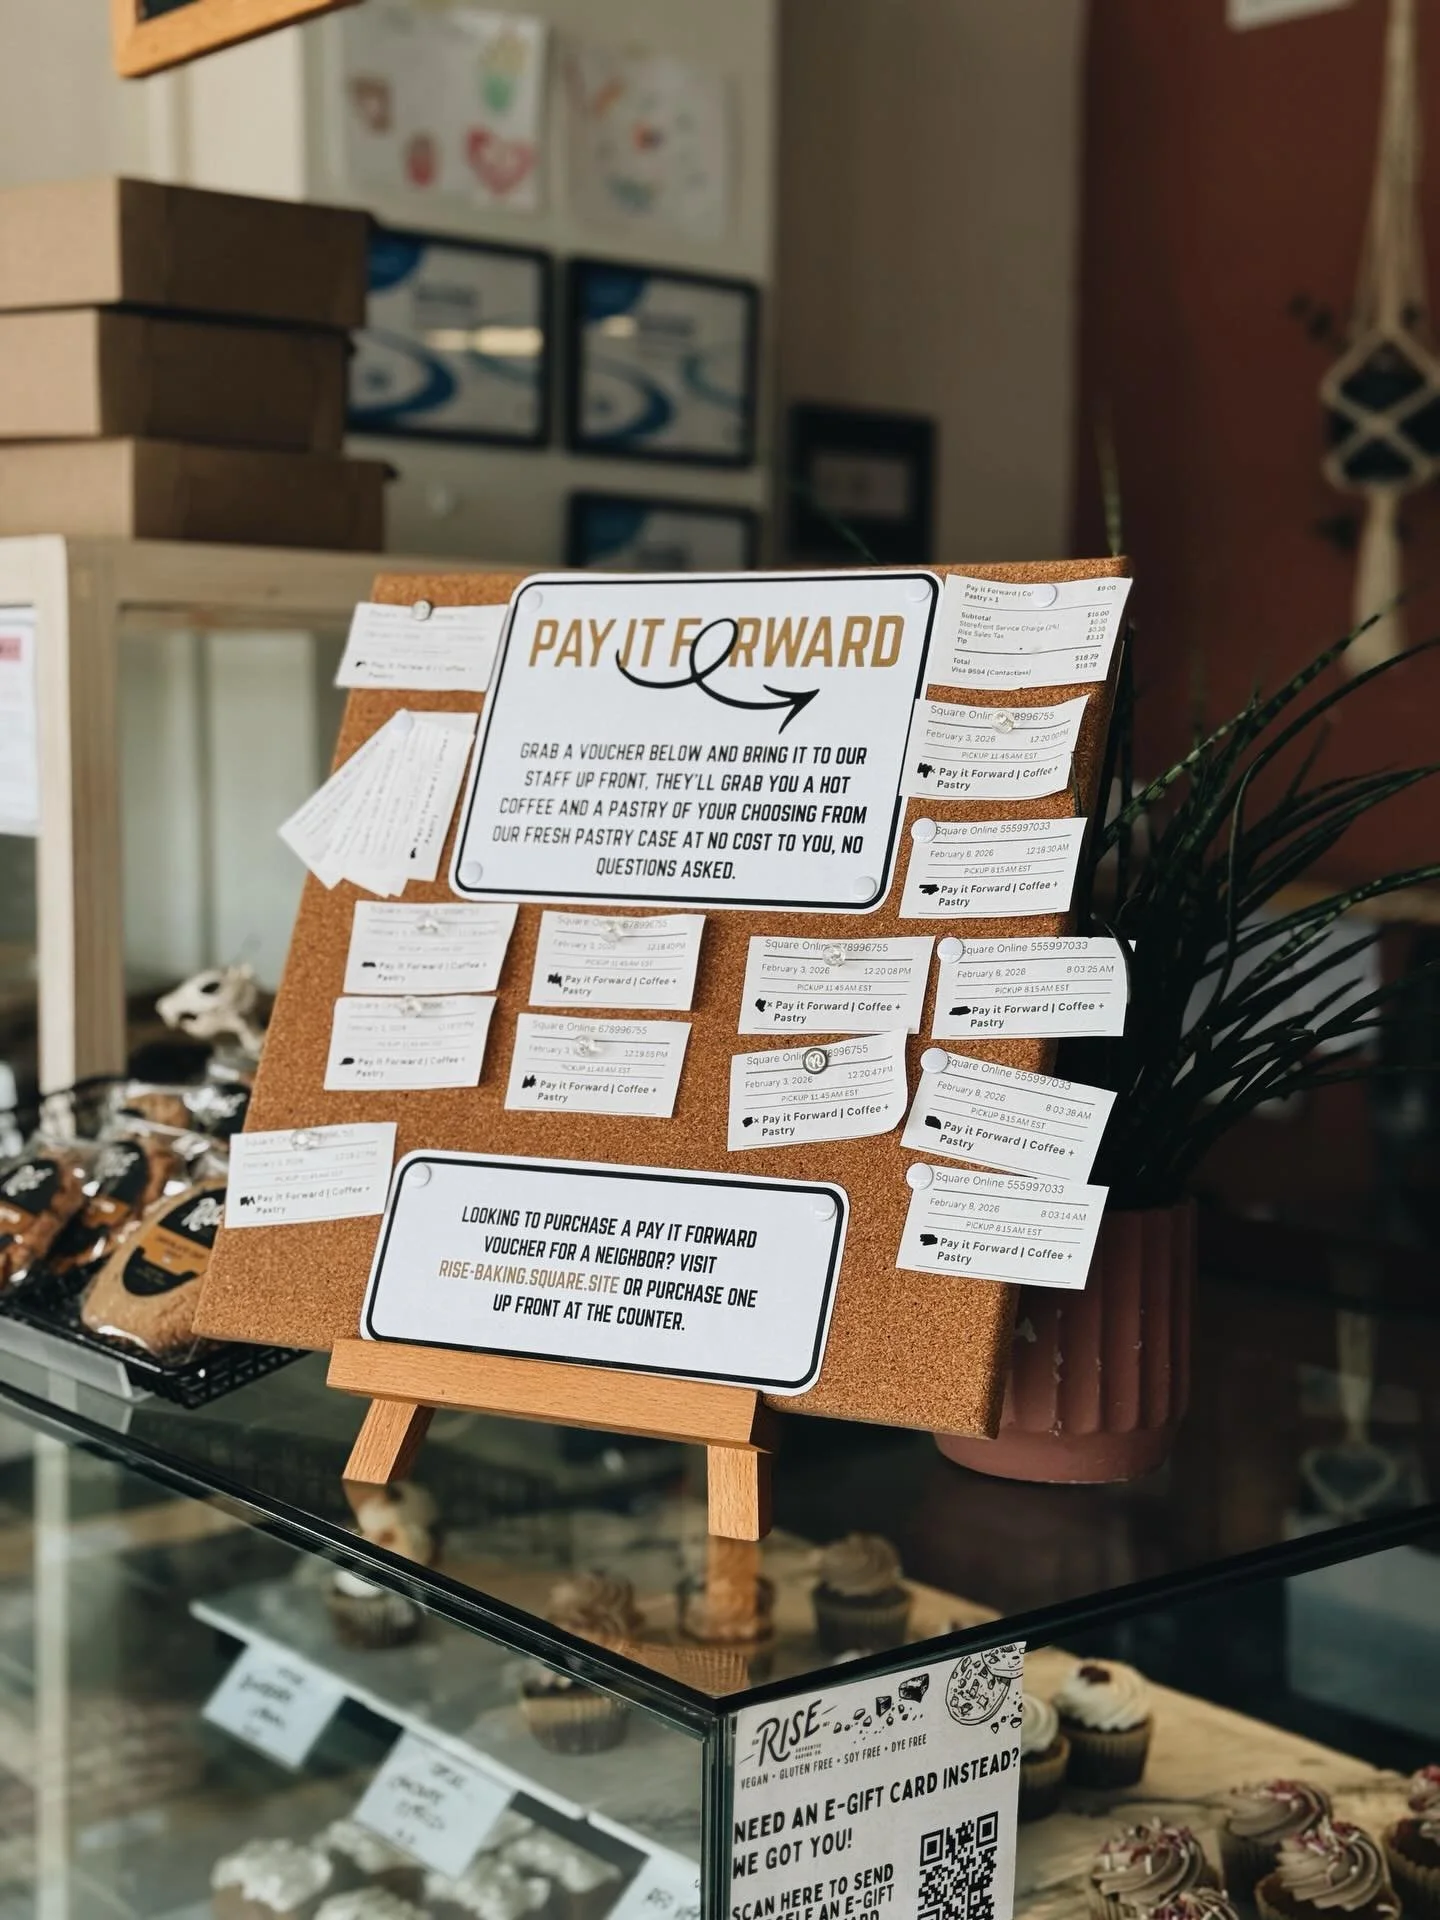 PAY IT FORWARD
GRAB A VOUCHER BELOW AND BRING IT TO OUR
STAFF UP FRONT, THEY'LL GRAB YOU A HOT
COFFEE AND A PASTRY OF YOUR CHOOSING FROM
OUR FRESH PASTRY CASE AT NO COST TO YOU, NO
QUESTIONS ASKED.
Pay it Forward | Coffee +
Pastry
Pay it Forward | Co
$9.00
Pastry × 1
Subtotal
Storefront Service Charge (2%)
Rise Sales Tax
Tip
$3.13
Total
$18.79
Visa 9594 (Contactless)
Square Onlin 678996755
February 3, 2026 12:20:00PM
PICKUP 11:45AM EST
× Pay it Forward | Coffee +
Pastry
Square Online 555997033
February 8, 2026 12:18:30AM
PICKUP 8:15AM EST
Pay it Forward | Coffee +
Pastry
Pay it Forward | Coffee +
Pastry
Square Online 678996755
February 3, 2026 12:18:40PM
PICKUP 11:45AM EST
Pay it Forward | Coffee +
Pastry
Square Onlin 78996755
February 3, 2026 12:20:08PM
PICKUP 11:45AM EST
× Pay it Forward | Coffee +
Pastry
Square Online 555997033
February 8, 2026 8:03:25AM
PICKUP 8:15AM EST
Pay it Forward | Coffee +
Pastry
Pay it Forward | Coffee +
Pastry
Square Online 678996755
February 3, 12:19:55PM
PICKUP 11:45AM EST
Pay it Forward | Coffee +
Pastry
Square Onlin 8996755
February 3, 2026 12:20:47PM
PICKUP 11:45AM EST
× Pay it Forward | Coffee +
Pastry
Square Online 555997033
February 8, 2026 8:03:38AM
PICKUP 8:15AM EST
Pay it Forward | Coffee +
Pastry
Pay it Forward | Coffee +
Pastry
Square Online 555997033
February 8, 2026 8:03:14AM
PICKUP 8:15AM EST
Pay it Forward | Coffee +
Pastry
LOOKING TO PURCHASE A PAY IT FORWARD
VOUCHER FOR A NEIGHBOR? VISIT
RISE-BAKING.SQUARE.SITE OR PURCHASE ONE
UP FRONT AT THE COUNTER.
RISE
VEGAN • GLUTEN FREE • SOY FREE • DYE FREE
NEED AN E-GIFT CARD INSTEAD?
WE GOT YOU!
SCAN HERE TO SEND
AN E-GIFT